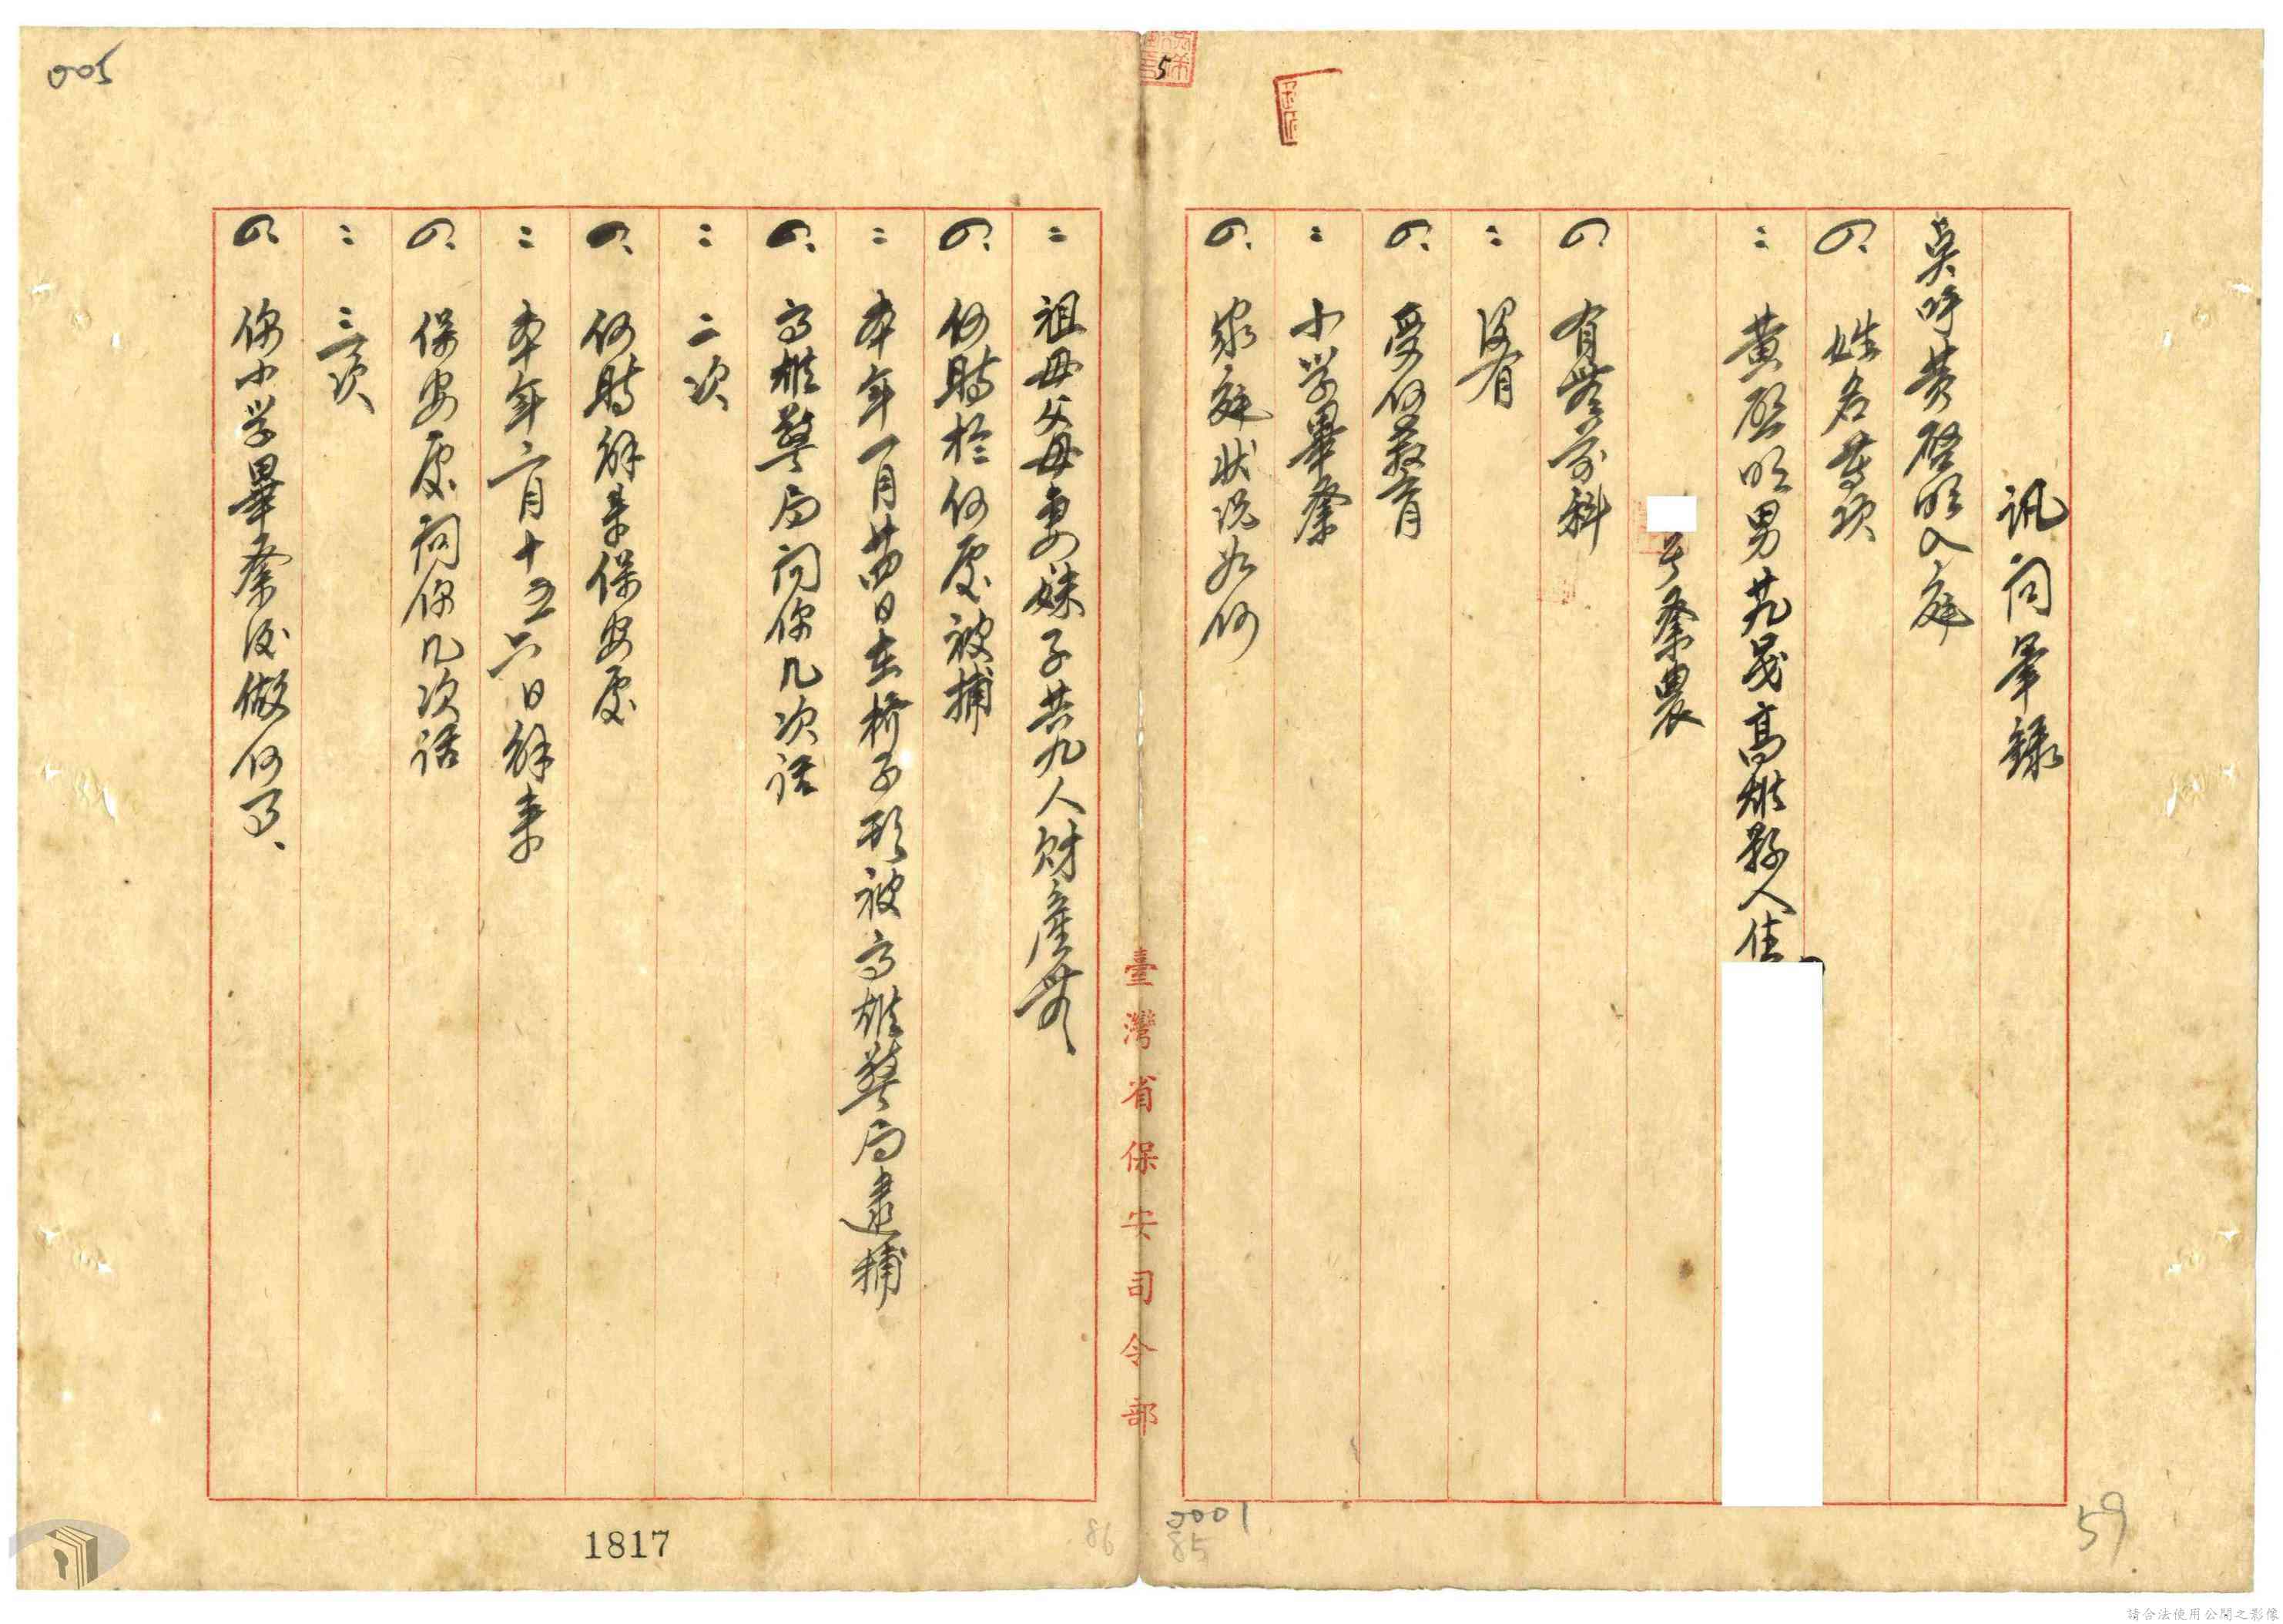 005
5
訊問筆錄
吳呼黃啓明入庭
問、姓名等項
：黃啓明男廿九歲高雄縣人住
号業農
問、有無前科
：沒有
問、受何教育
：小学畢業
問、家庭狀況如何
臺灣省保安司令部
：祖母父母妻妹子共九人財產無、
問、何時於何處被捕
：本年一月廿四日在橋子頭被高雄警局逮捕
問、高雄警局问你几次話
：二次
問、何時解來保安處
：本年二月十五六日解來
問、保安處问你几次話
：三次
問、你小学畢業後做何事、
1817
86
0001
85
59
請合法使用公開之影像